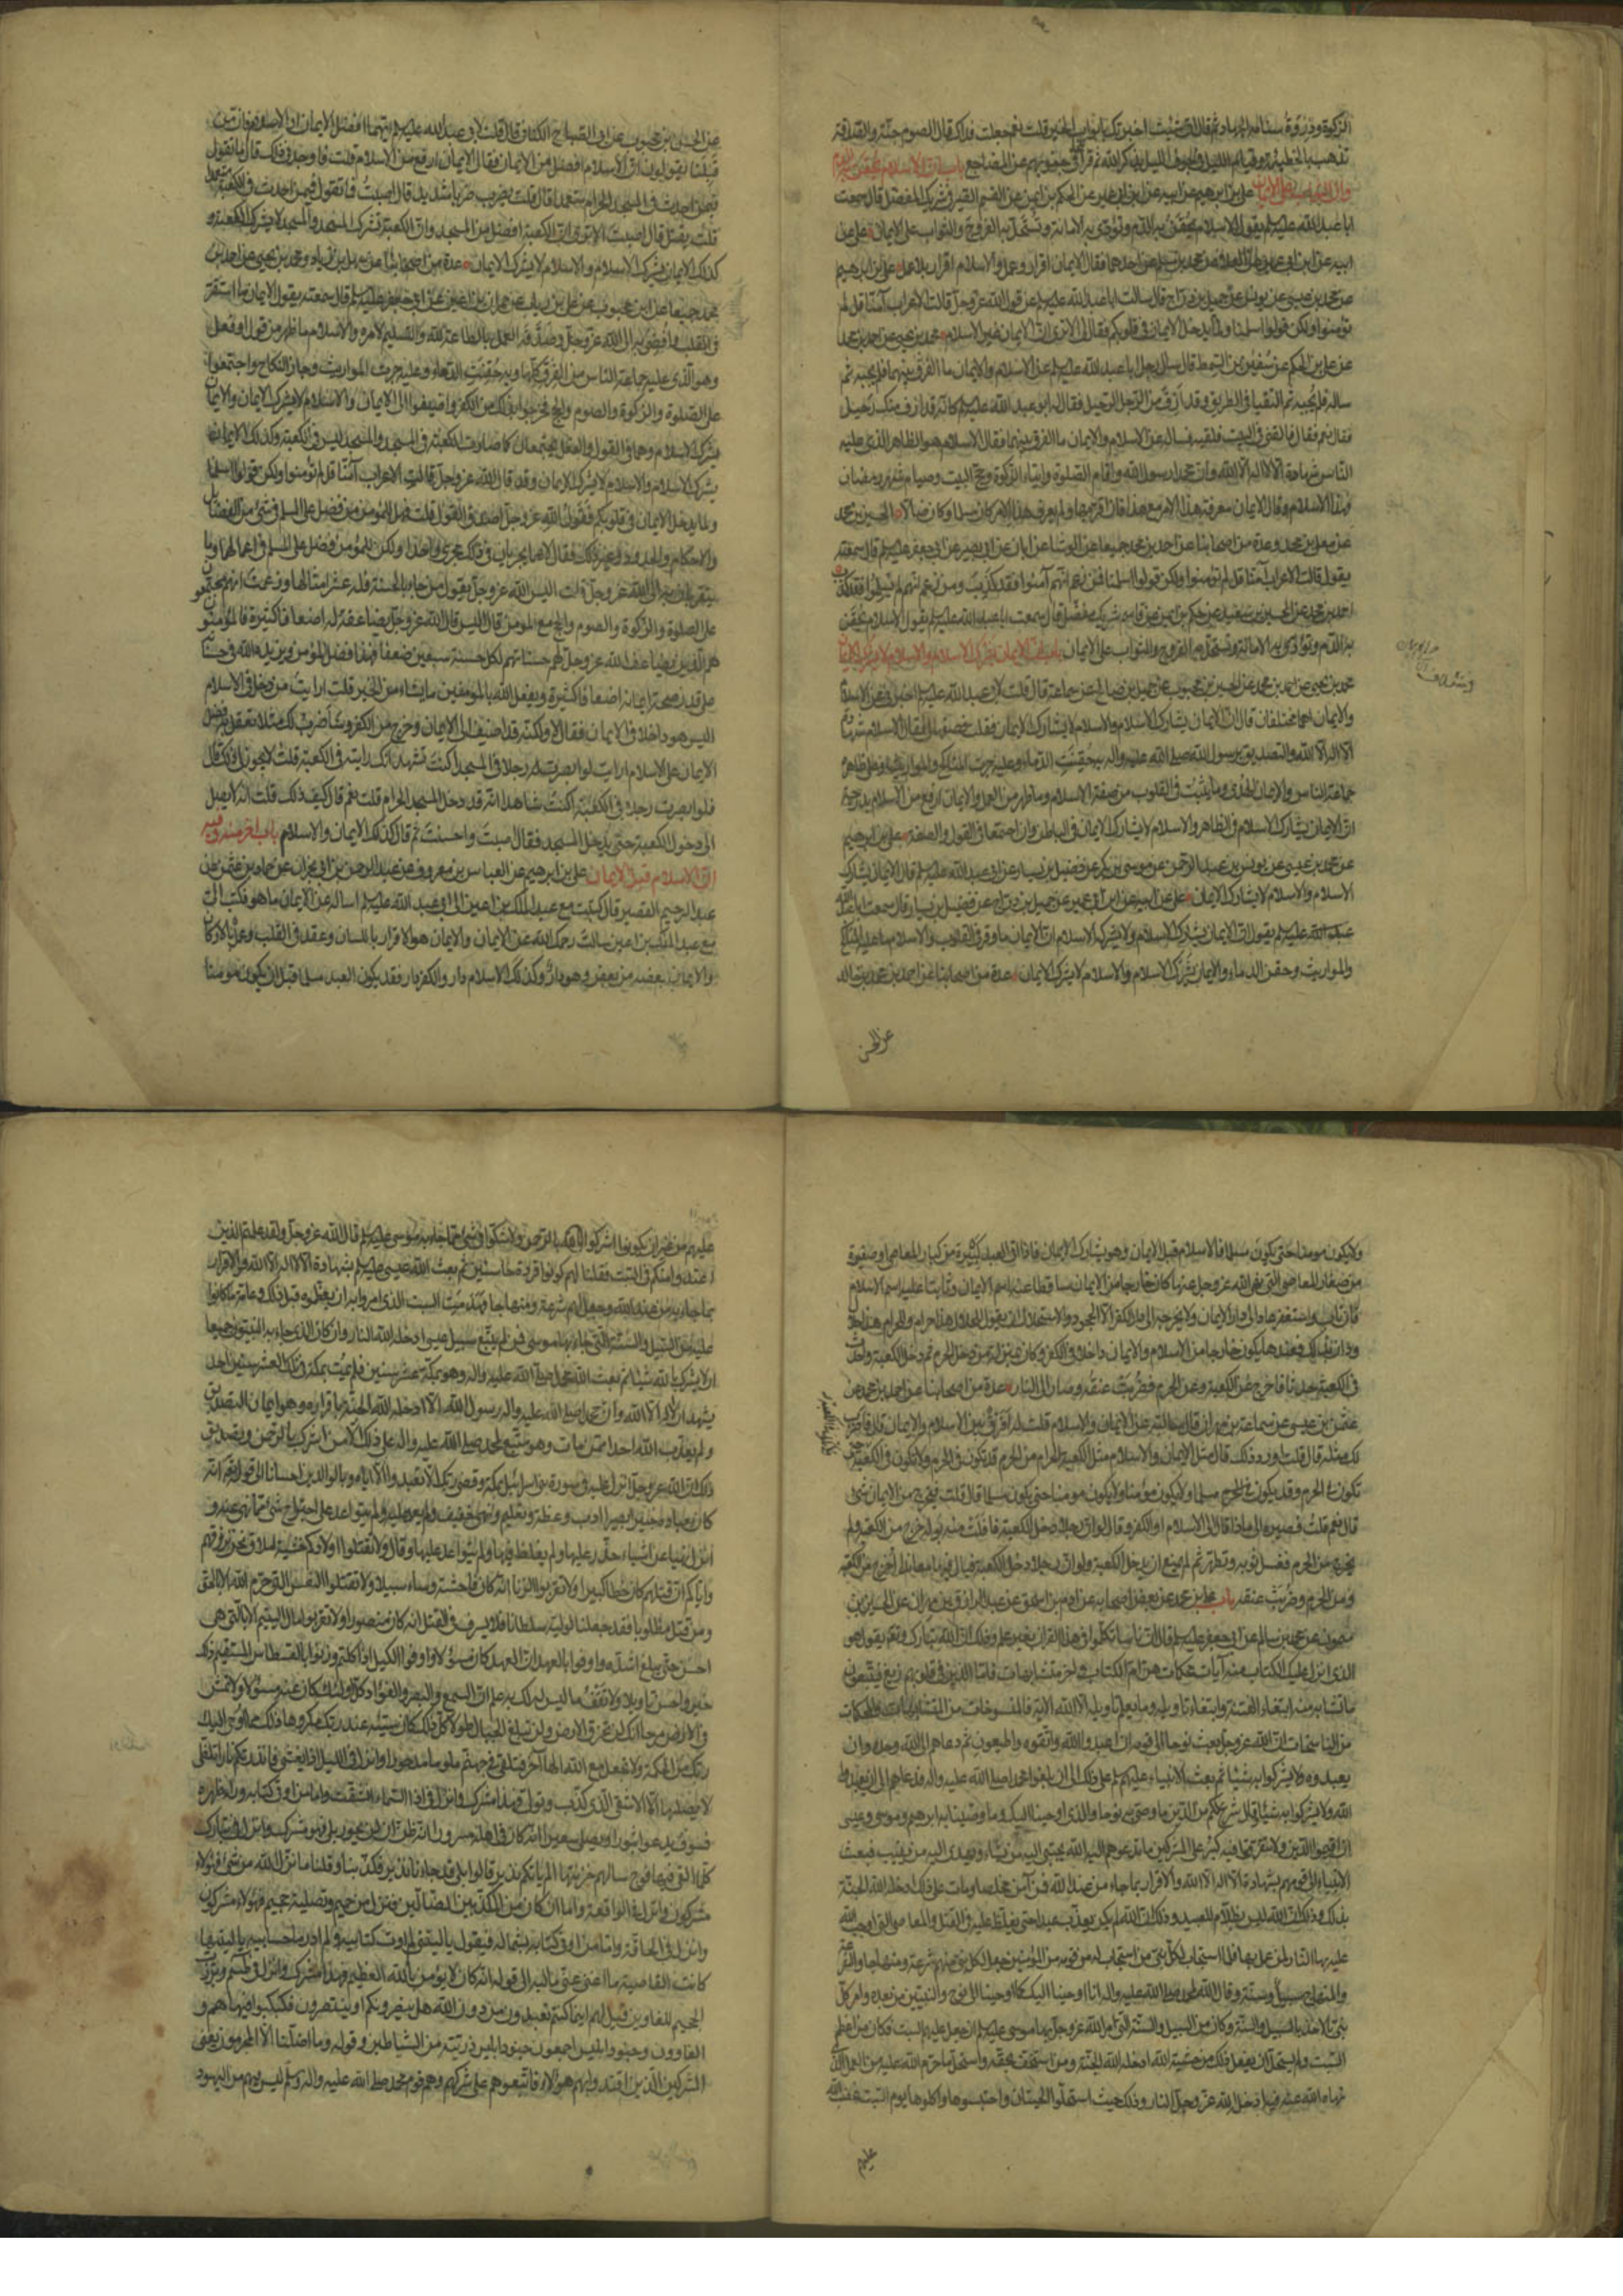 الزكوة وذروة سنامه الجهاد ثم قال ان شئت اخبرتك بابواب الخير قلت نعم جعلت فداك قال الصوم جنة والصدقة
تذهب بالخطيئة وقيام الليل في جوف الليل يذكر الله ثم قرأ تتجافى جنوبهم عن المضاجع باب ان الاسلام يحقن به الدم
وان الثواب على الايمان علي بن ابرهيم عن ابيه عن ابن ابي عمير عن الحكم بن ايمن عن القسم الصيرفي شريك المفضل قال سمعت
ابا عبد الله عليه يقول الاسلام يحقن به الدم وتؤدى به الامانة وتستحل به الفروج والثواب على الايمان علي عن
ابيه عن ابن ابي عمير عن العلاء عن محمد بن مسلم عن احدهما فقال الايمان اقرار وعمل والاسلام اقرار بلا عمل علي بن ابرهيم
عن محمد بن عيسى عن يونس عن جميل بن دراج قال سالت ابا عبد الله عليه عن قول الله عز وجل قالت الاعراب آمنا قل لم
تؤمنوا ولكن قولوا اسلمنا ولما يدخل الايمان في قلوبكم فقال لي الا ترى ان الايمان غير الاسلام محمد بن يحيى عن احمد بن محمد
عن علي بن الحكم عن سفين بن السمط قال سال رجل ابا عبد الله عليه عن الاسلام والايمان ما الفرق بينهما فلم يجبه ثم
ساله فلم يجبه ثم التقيا في الطريق وقد ازف من الرجل الرحيل فقال له ابو عبد الله عليه كانه قد ازف منك رحيل
فقال نعم فقال فالقني في البيت فلقيه فساله عن الاسلام والايمان ما الفرق بينهما فقال الاسلام هو الظاهر الذي عليه
الناس شهادة الا اله الا الله وان محمدا رسول الله واقام الصلوة وايتاء الزكوة وحج البيت وصيام شهر رمضان
فهذا الاسلام وقال الايمان معرفة هذا الامر مع هذا فان اقر بها ولم يعرف هذا الامر كان مسلما وكان ضالا الحسين بن محمد
عن معلى بن محمد وعدة من اصحابنا عن احمد بن محمد جميعا عن الوشا عن ابان عن ابي بصير عن ابي جعفر عليه قال سمعته
يقول قالت الاعراب آمنا قل لم تؤمنوا ولكن قولوا اسلمنا فمن زعم انهم آمنوا فقد كذب ومن زعم انهم لم يسلموا فقد كذب
احمد بن محمد عن الحسين بن سعيد عن حكم بن ايمن عن قاسم شريك مفضل قال سمعت ابا عبد الله عليه يقول الاسلام يحقن
به الدم وتؤدى به الامانة وتستحل به الفروج والثواب على الايمان باب ان الايمان يشرك الاسلام والاسلام لا يشرك الايمان
محمد بن يحيى عن احمد بن محمد عن الحسن بن محبوب عن جميل بن صالح عن سماعة قال قلت لابي عبد الله عليه اخبرني عن الاسلام
والايمان اهما مختلفان قال ان الايمان يشارك الاسلام والاسلام لا يشارك الايمان فقلت فصفهما لي فقال الاسلام شهادة
الا اله الا الله والتصديق برسول الله صلى الله عليه واله به حقنت الدماء وعليه جرت المناكح والمواريث وعلى ظاهره
جماعة الناس والايمان الهدى وما يثبت في القلوب من صفة الاسلام وما ظهر من العمل والايمان ارفع من الاسلام بدرجة
ان الايمان يشارك الاسلام في الظاهر والاسلام لا يشارك الايمان في الباطن وان اجتمعا في القول والصفة علي بن ابرهيم
عن محمد بن عيسى عن يونس بن عبد الرحمن عن موسى بن بكر عن فضيل بن يسار عن ابي عبد الله عليه قال الايمان يشارك
الاسلام والاسلام لا يشارك الايمان علي عن ابيه عن ابن ابي عمير عن جميل بن دراج عن فضيل بن يسار قال سمعت ابا
عبد الله عليه يقول ان الايمان يشارك الاسلام ولا يشركه الاسلام ان الايمان ما وقر في القلوب والاسلام ما عليه المناكح
والمواريث وحقن الدماء والايمان يشرك الاسلام والاسلام لا يشرك الايمان عدة من اصحابنا عن احمد بن محمد بن خالد
عن الحسن
عن الحسن بن محبوب عن ابي الصباح الكناني قال قلت لابي عبد الله عليه ايهما افضل الايمان او الاسلام فان من
قبلنا يقولون ان الاسلام افضل من الايمان فقال الايمان ارفع من الاسلام قلت فاوجدني ذاك قال ما تقول
فيمن احدث في المسجد الحرام متعمدا قال قلت يضرب ضربا شديدا قال اصبت قال فما تقول فيمن احدث في الكعبة متعمدا
قلت يقتل قال اصبت الا ترى ان الكعبة افضل من المسجد وان الكعبة تشرك المسجد والمسجد لا يشرك الكعبة و
كذلك الايمان يشرك الاسلام والاسلام لا يشرك الايمان عدة من اصحابنا عن سهل بن زياد ومحمد بن يحيى عن احمد بن
محمد جميعا عن ابن محبوب عن علي بن رئاب عن حمران بن اعين عن ابي جعفر عليه قال سمعته يقول الايمان ما استقر
في القلب وافضى به الى الله عز وجل وصدقه العمل بالطاعة لله والتسليم لامره والاسلام ما ظهر من قول او فعل
وهو الذي عليه جماعة الناس من الفرق كلها وبه حقنت الدماء وعليه جرت المواريث وجاز النكاح واجتمعوا
على الصلوة والزكوة والصوم والحج فخرجوا بذلك من الكفر واضيفوا الى الايمان والاسلام لا يشرك الايمان والايمان
يشرك الاسلام وهما في القول والفعل يجتمعان كما صارت الكعبة في المسجد والمسجد ليس في الكعبة وكذلك الايمان
يشرك الاسلام والاسلام لا يشرك الايمان وقد قال الله عز وجل قالت الاعراب آمنا قل لم تؤمنوا ولكن قولوا اسلمنا
ولما يدخل الايمان في قلوبكم فقول الله عز وجل اصدق القول قلت فهل للمؤمن من فضل على المسلم في شئ من الفضائل
والاحكام والحدود وغير ذلك فقال لا هما يجريان في ذلك مجرى واحدا ولكن للمؤمن فضل على المسلم في اعمالهما وما
يتقربان به الى الله عز وجل قلت اليس الله عز وجل يقول من جاء بالحسنة فله عشر امثالها وزعمت انهم مجتمعون
على الصلوة والزكوة والصوم والحج مع المؤمن قال اليس قال الله عز وجل يضاعفه له اضعافا كثيرة فالمؤمنون
هم الذين يضاعف الله عز وجل لهم حسناتهم لكل حسنة سبعين ضعفا فهذا فضل المؤمن ويزيده الله في حسناته
على قدر صحة ايمانه اضعافا كثيرة ويفعل الله بالمؤمنين ما يشاء من الخير قلت ارايت من دخل في الاسلام
اليس هو داخلا في الايمان فقال لا ولكنه قد اضيف الى الايمان وخرج من الكفر وساضرب لك مثلا تعقل به فضل
الايمان على الاسلام ارايت لو ابصرت رجلا في المسجد اكنت تشهد انك رايته في الكعبة قلت لا يجوز لي ذلك قال
فلو ابصرت رجلا في الكعبة اكنت شاهدا انه قد دخل المسجد الحرام قلت نعم قال كيف ذلك قلت انه لا يصل
الى دخول الكعبة حتى يدخل المسجد فقال اصبت واحسنت ثم قال كذلك الايمان والاسلام باب اخر منه وفيه
ان الاسلام قبل الايمان علي بن ابرهيم عن العباس بن معروف عن عبد الرحمن بن ابي نجران عن حماد بن عثمن عن
عبد الرحيم القصير قال كتبت مع عبد الملك بن اعين الى ابي عبد الله عليه اساله عن الايمان ما هو فكتب الي
مع عبد الملك بن اعين سالت رحمك الله عن الايمان والايمان هو الاقرار باللسان وعقد في القلب وعمل بالاركان
والايمان بعضه من بعض وهو دار وكذلك الاسلام دار والكفر دار فقد يكون العبد مسلما قبل ان يكون مؤمنا
ولا يكون مؤمنا حتى يكون مسلما فالاسلام قبل الايمان وهو يشارك الايمان فاذا اتى العبد كبيرة من كبائر المعاصي او صغيرة
من صغائر المعاصي التي نهى الله عز وجل عنها كان خارجا من الايمان ساقطا عنه اسم الايمان وثابتا عليه اسم الاسلام
فان تاب واستغفر عاد الى دار الايمان ولا يخرجه الى الكفر الا الجحود والاستحلال ان يقول للحلال هذا حرام وللحرام هذا حلال
ودان بذلك فعندها يكون خارجا من الاسلام والايمان داخلا في الكفر وكان بمنزلة من دخل الحرم ثم دخل الكعبة واحدث
في الكعبة حدثا فاخرج عن الكعبة وعن الحرم فضربت عنقه وصار الى النار عدة من اصحابنا عن احمد بن محمد عن
عثمن بن عيسى عن سماعة بن مهران قال سالته عن الايمان والاسلام قلت له افرق بين الاسلام والايمان قال فاضرب
لك مثله قال قلت اورد ذلك قال مثل الايمان والاسلام مثل الكعبة الحرام من الحرم قد يكون في الحرم ولا يكون في الكعبة
يكون في الحرم وقد يكون مسلما ولا يكون مؤمنا ولا يكون مؤمنا حتى يكون مسلما قال قلت فيخرج من الايمان شئ
قال نعم قلت فيصيره الى ماذا قال الى الاسلام او الكفر وقال لو ان رجلا دخل الكعبة فافلت منه بوله اخرج من الكعبة ولم
يخرج من الحرم فغسل ثوبه وتطهر ثم لم يمنع ان يدخل الكعبة ولو ان رجلا دخل الكعبة فبال فيها معاندا اخرج من الكعبة
ومن الحرم وضربت عنقه باب علي بن محمد عن بعض اصحابه عن آدم بن اسحق عن عبد الرزاق بن مهران عن الحسين بن
ميمون عن محمد بن سالم عن ابي جعفر عليه قال ان ناسا تكلموا في هذا القران بغير علم وذلك ان الله تبارك وتعالى يقول هو
الذي انزل عليك الكتاب منه آيات محكمات هن ام الكتاب واخر متشابهات فاما الذين في قلوبهم زيغ فيتبعون
ما تشابه منه ابتغاء الفتنة وابتغاء تاويله وما يعلم تاويله الا الله الاية فالمنسوخات من المتشابهات والمحكمات
من الناسخات ان الله عز وجل بعث نوحا الى قومه ان اعبدوا الله واتقوه واطيعون ثم دعاهم الى الله وحده وان
يعبدوه ولا يشركوا به شيئا ثم بعث الانبياء عليهم على ذلك الى ان بلغوا محمدا صلى الله عليه واله فدعاهم الى ان يعبدوا
الله ولا يشركوا به شيئا وقال شرع لكم من الدين ما وصى به نوحا والذي اوحينا اليك وما وصينا به ابرهيم وموسى وعيسى
ان اقيموا الدين ولا تتفرقوا فيه كبر على المشركين ما تدعوهم اليه الله يجتبي اليه من يشاء ويهدي اليه من ينيب فبعث
الانبياء الى قومهم بشهادة الا اله الا الله والاقرار بما جاء من عند الله فمن آمن مخلصا ومات على ذلك ادخله الله الجنة
بذلك وذلك ان الله ليس بظلام للعبيد وذلك ان الله لم يكن يعذب عبدا حتى يغلظ عليه في القتل والمعاصي التي اوجب الله
عليه بها النار لمن عمل بها فلما استجاب لكل نبي من استجاب له من قومه من المؤمنين جعل لكل نبي منهم شرعة ومنهاجا والشرعة
والمنهاج سبيل وسنة وقال الله لمحمد صلى الله عليه واله انا اوحينا اليك كما اوحينا الى نوح والنبيين من بعده وامر كل
نبي بالاخذ بالسبيل والسنة وكان من السبيل والسنة التي امر الله عز وجل بها موسى عليه ان جعل عليهم السبت فكان من اعظم
السبت ولم يستحل ان يفعل ذلك من خشية الله ادخله الله الجنة ومن استخف بحقه واستحل ما حرم الله عليه من العمل الذي
نهاه الله عنه فيه ادخله الله عز وجل النار وذلك حيث استحلوا الحيتان واحتبسوها واكلوها يوم السبت غضب الله
عليهم
عليهم من غير ان يكونوا اشركوا بالرحمن ولا شكوا في شئ مما جاء به موسى عليه قال الله عز وجل ولقد علمتم الذين
اعتدوا منكم في السبت فقلنا لهم كونوا قردة خاسئين ثم بعث الله عيسى عليه بشهادة الا اله الا الله والاقرار
بما جاء به من عند الله وجعل لهم شرعة ومنهاجا فهدمت السبت الذي امروا به ان يعظموه قبل ذلك وعامة ما كانوا
عليه من السبيل والسنة التي جاء بها موسى فمن لم يتبع سبيل عيسى ادخله الله النار وان كان الذي جاء به النبيون جميعا
ان لا يشركوا بالله شيئا ثم بعث الله محمدا صلى الله عليه واله وهو بمكة عشر سنين فلم يمت بمكة في تلك العشر سنين احد
يشهد ان لا اله الا الله وان محمدا صلى الله عليه واله رسول الله الا ادخله الله الجنة باقراره وهو ايمان التصديق
ولم يعذب الله احدا ممن مات وهو متبع لمحمد صلى الله عليه واله على ذلك الا من اشرك بالرحمن وتصديق
ذلك ان الله عز وجل انزل عليه في سورة بني اسرائيل بمكة وقضى ربك الا تعبدوا الا اياه وبالوالدين احسانا الى قوله انه
كان بعباده خبيرا بصيرا ادب وعظة وتعليم ونهي خفيف ولم يعد عليه ولم يتواعد على اجتراح شئ مما نهى عنه و
انزل نهيا عن اشياء حذر عليها ولم يغلظ فيها ولم يتواعد عليها وقال ولا تقتلوا اولادكم خشية املاق نحن نرزقهم
واياكم ان قتلهم كان خطا كبيرا ولا تقربوا الزنا انه كان فاحشة وساء سبيلا ولا تقتلوا النفس التي حرم الله الا بالحق
ومن قتل مظلوما فقد جعلنا لوليه سلطانا فلا يسرف في القتل انه كان منصورا ولا تقربوا مال اليتيم الا بالتي هي
احسن حتى يبلغ اشده واوفوا بالعهد ان العهد كان مسؤلا واوفوا الكيل اذا كلتم وزنوا بالقسطاس المستقيم ذلك
خير واحسن تاويلا ولا تقف ما ليس لك به علم ان السمع والبصر والفؤاد كل اولئك كان عنه مسؤلا ولا تمش
في الارض مرحا انك لن تخرق الارض ولن تبلغ الجبال طولا كل ذلك كان سيئه عند ربك مكروها ذلك مما اوحى اليك
ربك من الحكمة ولا تجعل مع الله الها آخر فتلقى في جهنم ملوما مدحورا وانزل في الليل اذا يغشى فانذرتكم نارا تلظى
لا يصليها الا الاشقى الذي كذب وتولى فهذا مشرك وانزل في اذا السماء انشقت واما من اوتي كتابه وراء ظهره
فسوف يدعو ثبورا ويصلى سعيرا انه كان في اهله مسرورا انه ظن ان لن يحور بلى فهذا مشرك وانزل في تبارك
كلما القي فيها فوج سالهم خزنتها الم ياتكم نذير قالوا بلى قد جاءنا نذير فكذبنا وقلنا ما نزل الله من شئ فهؤلاء
مشركون وانزل في الواقعة واما ان كان من المكذبين الضالين فنزل من حميم وتصلية جحيم فهؤلاء مشركون
وانزل في الحاقة واما من اوتي كتابه بشماله فيقول يا ليتني لم اوت كتابيه ولم ادر ما حسابيه يا ليتها
كانت القاضية ما اغنى عني ماليه الى قوله انه كان لا يؤمن بالله العظيم فهذا مشرك وانزل في طسم وبرزت
الجحيم للغاوين وقيل لهم اينما كنتم تعبدون من دون الله هل ينصرونكم او ينتصرون فكبكبوا فيها هم و
الغاوون وجنود ابليس اجمعون جنود ابليس ذريته من الشياطين وقوله وما اضلنا الا المجرمون يعني
المشركين الذين اقتدوا بهم هؤلاء فاتبعوهم على شركهم وهم قوم محمد صلى الله عليه واله وسلم ليس فيهم من اليهود